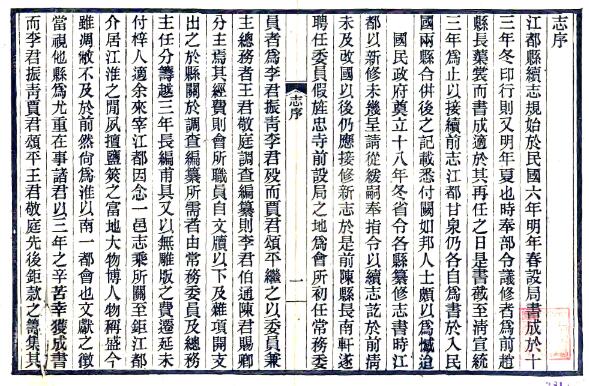 志序
江都縣續志規始於民國六年明年春設局書成於十
三年冬印行則又明年夏也時奉部令議修者爲前趙
縣長葉裳而書成適於其再任之日是書截至淸宣統
三年爲止以接續前志江都甘泉仍各自爲書於入民
國兩縣合併後之記載悉付闕如邦人士頗以爲憾迨
國民政府奠立十八年冬省令各縣纂修志書時江
都以新修未幾呈請從緩嗣奉指令以續志訖於前淸
未及改國以後仍應接修新志於是前陳縣長南軒遂
聘任委員假旌忠寺前設局之地爲會所初任常務委
志序
一
員者爲李君振靑李君歿而賈君頌平繼之以委員兼
主總務者王君敬庭調查編纂則李君伯通陳君賜卿
分主焉其經費則會所職員自文牘以下及雜項開支
出之於縣關於調查編纂所需者由常務委員及總務
主任分籌越三年長編甫具又以無雕版之費遷延未
付梓人適余來宰江都因念一邑志乘所關至鉅江都
介居江淮之閒夙擅鹽筴之富地大物博人物稱盛今
雖凋敝不及於前然尙爲淮以南一都會也文獻之徵
當視他縣爲尤重在事諸君以三年之辛苦幸獲成書
而李君振靑賈君頌平王君敬庭先後鉅款之籌集其